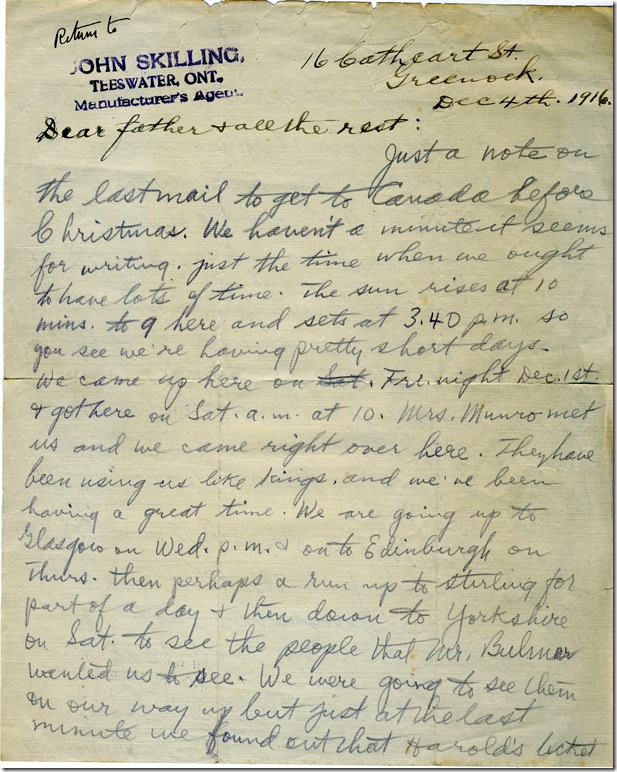 Return to
JOHN SKILLING,
TEESWATER, ONT.,
Manufacturer's Agent.
16 Cathcart St.
Greenock.
Dec 4th. 1916.
Dear father & all the rest:
Just a note on
the last mail to get to Canada before
Christmas. We haven't a minute it seems
for writing. just the time when we ought
to have lots of time. The sun rises at 10
mins. to 9 here and sets at 3.40 p.m. so
you see we're having pretty short days.
We came up here on Sat. Fri. night Dec. 1st.
& got here on Sat. a.m. at 10. Mrs. Munro met
us and we came right over here. They have
been using us like kings. and we've been
having a great time. We are going up to
Glasgow on Wed. p.m. & on to Edinburgh on
Thurs. then perhaps a run up to stirling for
part of a day & then down to Yorkshire
on Sat. to see the people that Mr. Bulmer
wanted us to see. We were going to see them
on our way up but just at the last
minute we found out that Harold's ticket